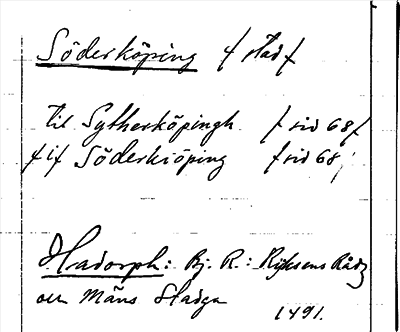 Söderköping / stad /
til Sytherköpingh / sid 68 /
/ i / Söderkiöping / sid 68 /
Hadorph: Bj. R.: Rijksens Rådz
och Mäns Stadga
1491.